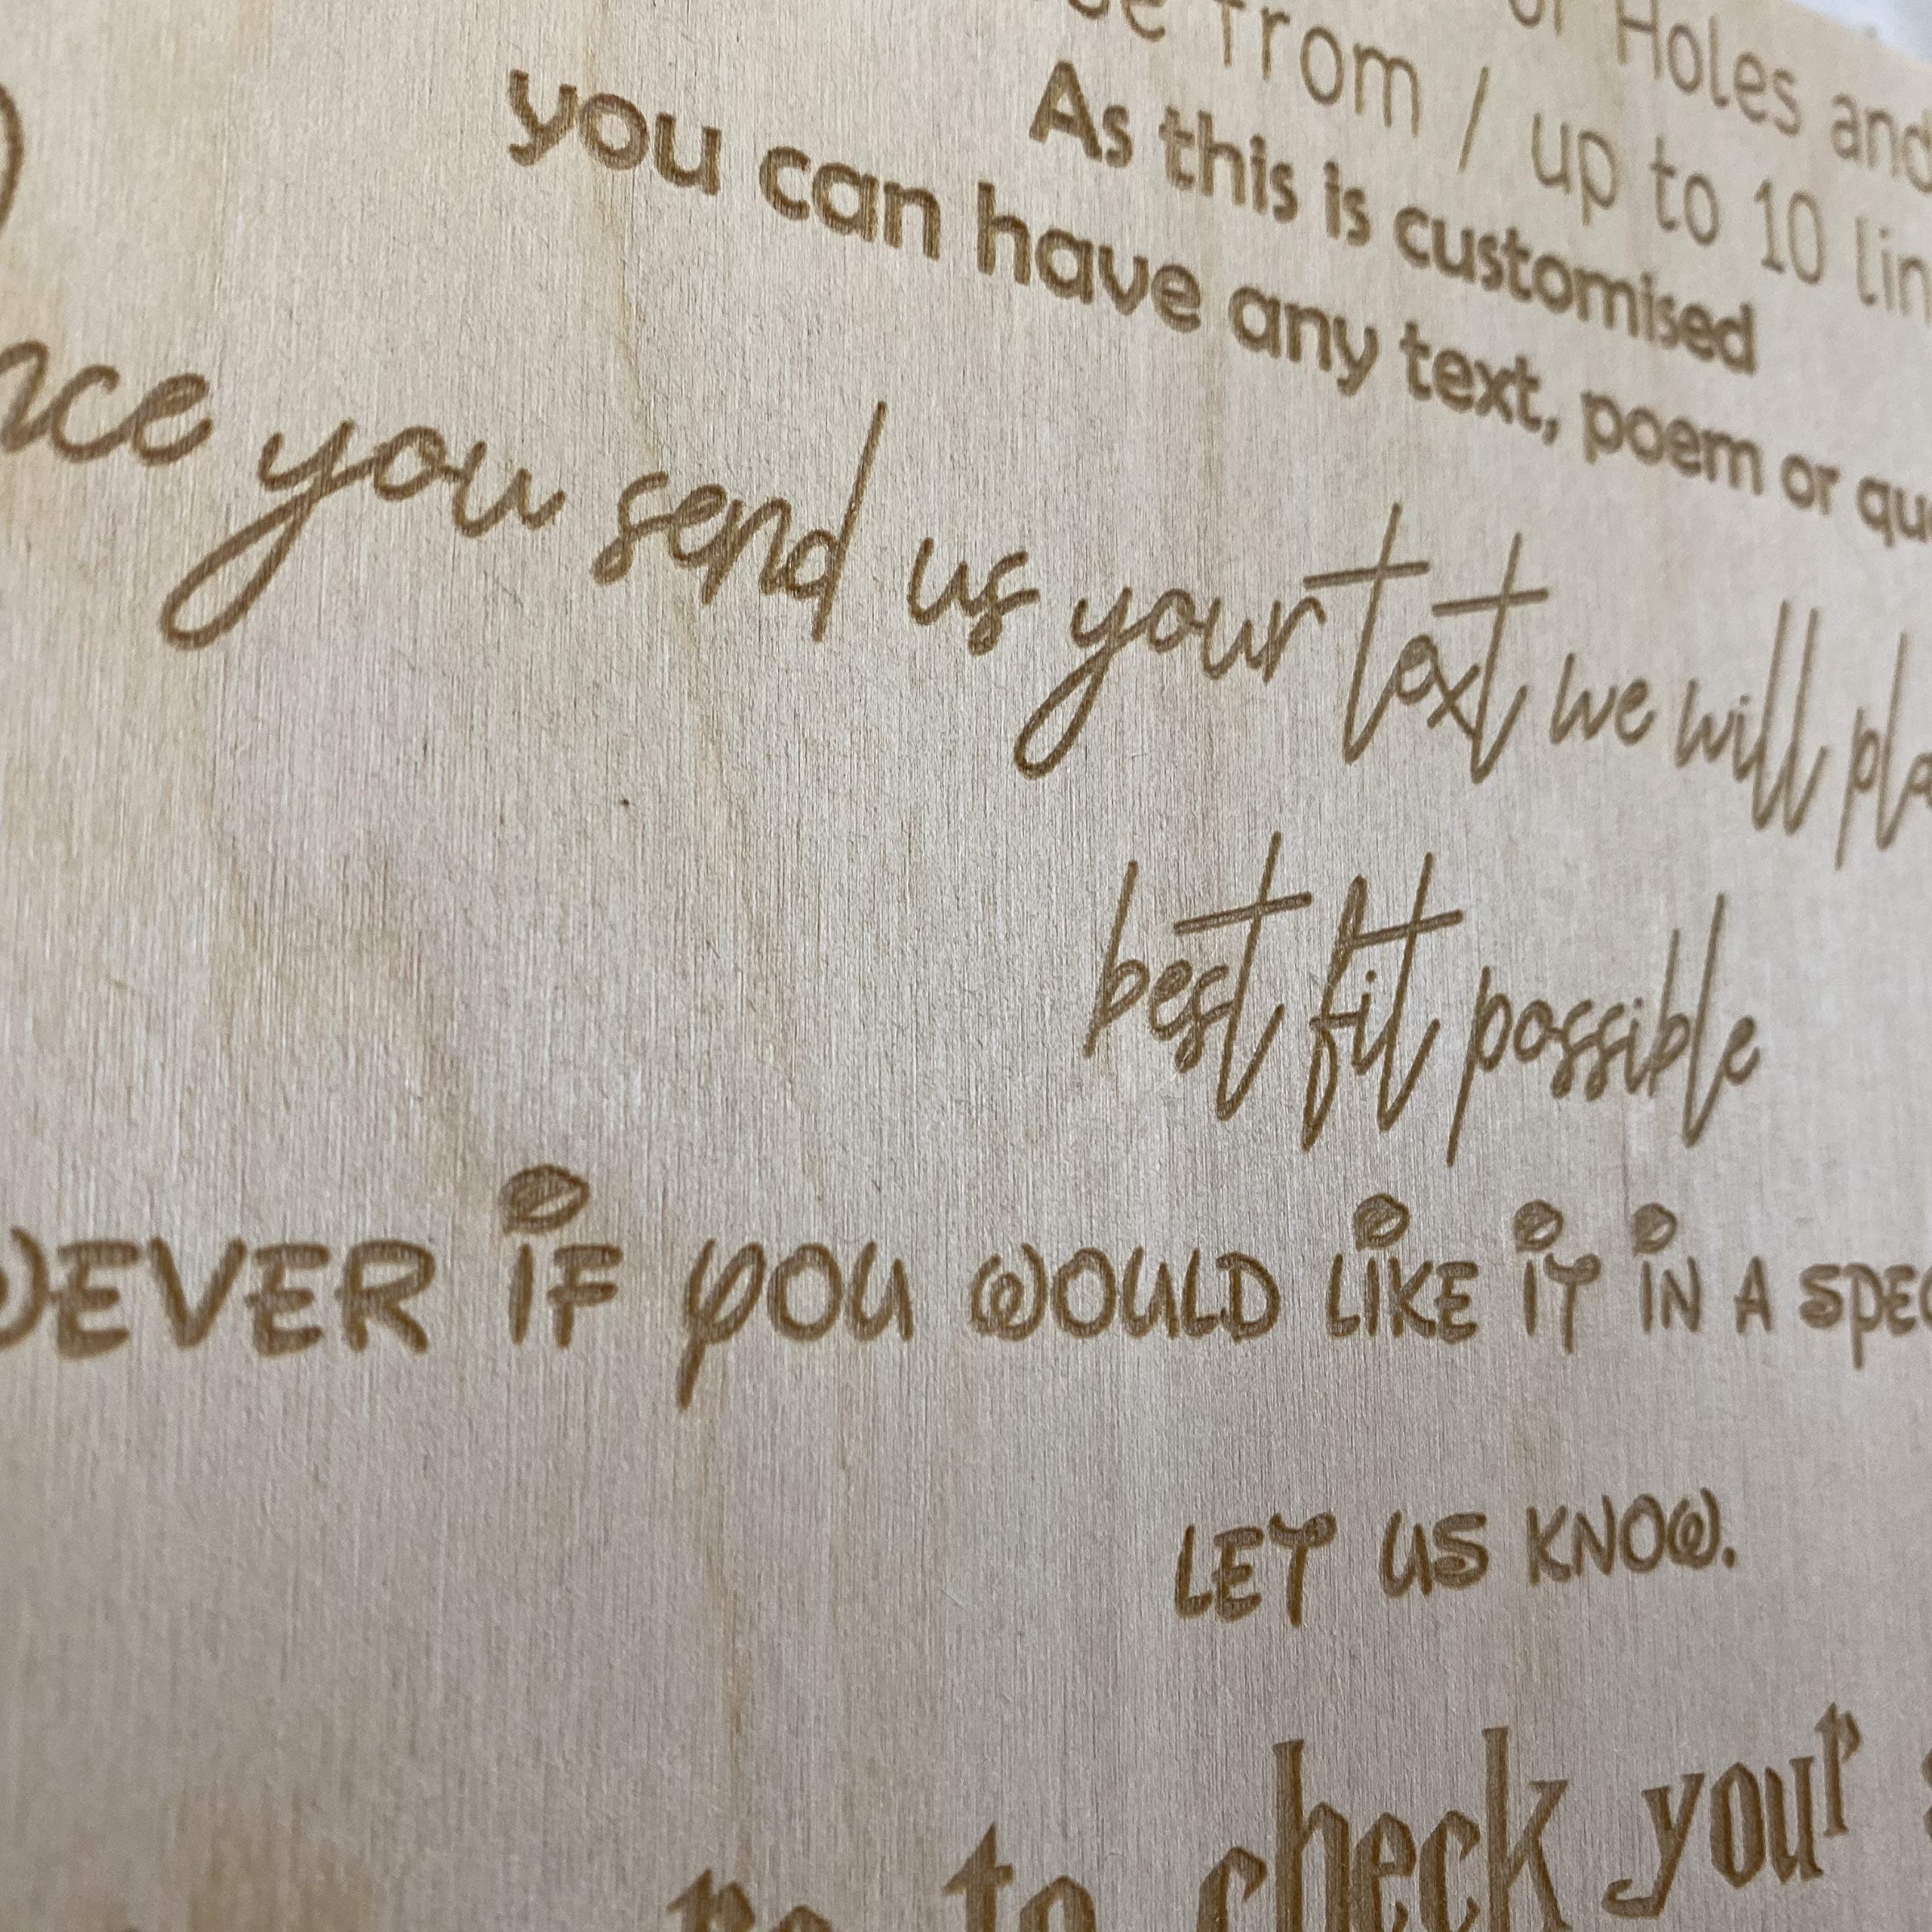 or Holes and
from / up to 10
As this is customised
you can have any text, poem or
you send us your text we will
best fit possible
IF YOU WOULD LIKE IT IN A
LET US KNOW.
to check your